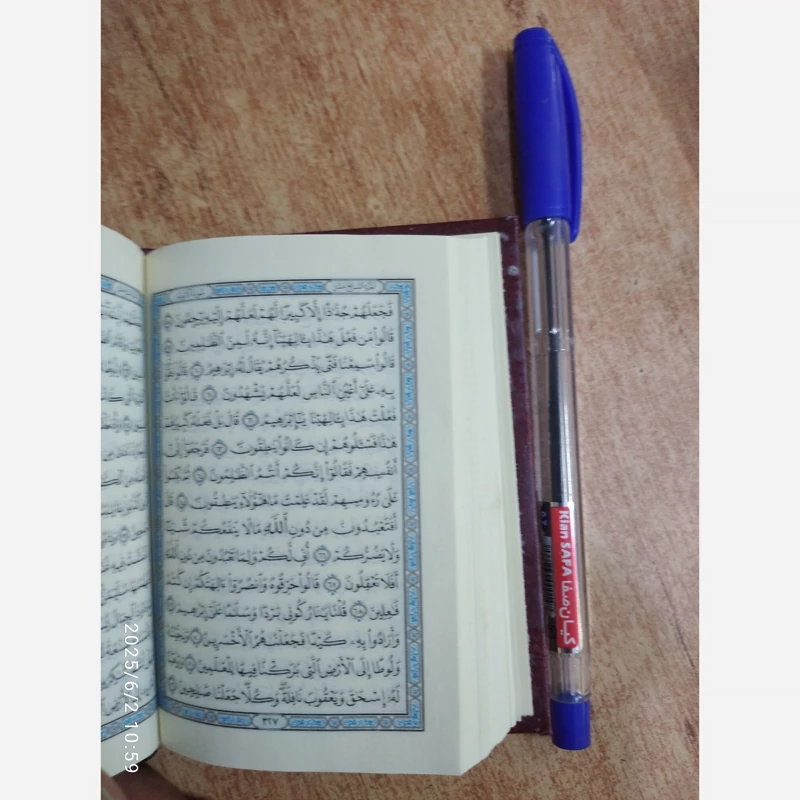 فَجَعَلَهُمْ جُذَٰذًا إِلَّا كَبِيرًا لَّهُمْ لَعَلَّهُمْ إِلَيْهِ يَرْجِعُونَ
قَالُوا۟ مَن فَعَلَ هَٰذَا بِـَٔالِهَتِنَآ إِنَّهُۥ لَمِنَ ٱلظَّٰلِمِينَ
قَالُوا۟ سَمِعْنَا فَتًى يَذْكُرُهُمْ يُقَالُ لَهُۥٓ إِبْرَٰهِيمُ ٦٠ قَالُوا۟ فَأْتُوا۟
بِهِۦ عَلَىٰٓ أَعْيُنِ ٱلنَّاسِ لَعَلَّهُمْ يَشْهَدُونَ ٦١ قَالُوٓا۟ ءَأَنتَ
فَعَلْتَ هَٰذَا بِـَٔالِهَتِنَا يَٰٓإِبْرَٰهِيمُ ٦٢ قَالَ بَلْ فَعَلَهُۥ كَبِيرُهُمْ
هَٰذَا فَسْـَٔلُوهُمْ إِن كَانُوا۟ يَنطِقُونَ ٦٣ فَرَجَعُوٓا۟ إِلَىٰٓ
أَنفُسِهِمْ فَقَالُوٓا۟ إِنَّكُمْ أَنتُمُ ٱلظَّٰلِمُونَ ٦٤ ثُمَّ نُكِسُوا۟
عَلَىٰ رُءُوسِهِمْ لَقَدْ عَلِمْتَ مَا هَٰٓؤُلَآءِ يَنطِقُونَ ٦٥ قَالَ
أَفَتَعْبُدُونَ مِن دُونِ ٱللَّهِ مَا لَا يَنفَعُكُمْ شَيْـًٔا
وَلَا يَضُرُّكُمْ ٦٦ أُفٍّ لَّكُمْ وَلِمَا تَعْبُدُونَ مِن دُونِ ٱللَّهِ
أَفَلَا تَعْقِلُونَ ٦٧ قَالُوا۟ حَرِّقُوهُ وَٱنصُرُوٓا۟ ءَالِهَتَكُمْ إِن كُنتُمْ
فَٰعِلِينَ ٦٨ قُلْنَا يَٰنَارُ كُونِى بَرْدًا وَسَلَٰمًا عَلَىٰٓ إِبْرَٰهِيمَ ٦٩
وَأَرَادُوا۟ بِهِۦ كَيْدًا فَجَعَلْنَٰهُمُ ٱلْأَخْسَرِينَ ٧٠ وَنَجَّيْنَٰهُ
وَلُوطًا إِلَى ٱلْأَرْضِ ٱلَّتِى بَٰرَكْنَا فِيهَا لِلْعَٰلَمِينَ ٧١ وَوَهَبْنَا
لَهُۥٓ إِسْحَٰقَ وَيَعْقُوبَ نَافِلَةً وَكُلًّا جَعَلْنَا صَٰلِحِينَ ٧٢
٣٢٧
Kian SAFA کیان صفا
2025/6/2 10:59